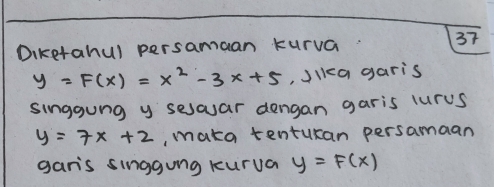 37
Diketahui persamaan kurva
y = F(x) = x² - 3x + 5, Jika garis
singgung y sejajar dengan garis lurus
y = 7x + 2, maka tentukan persamaan
garis singgung kurva y = F(x)